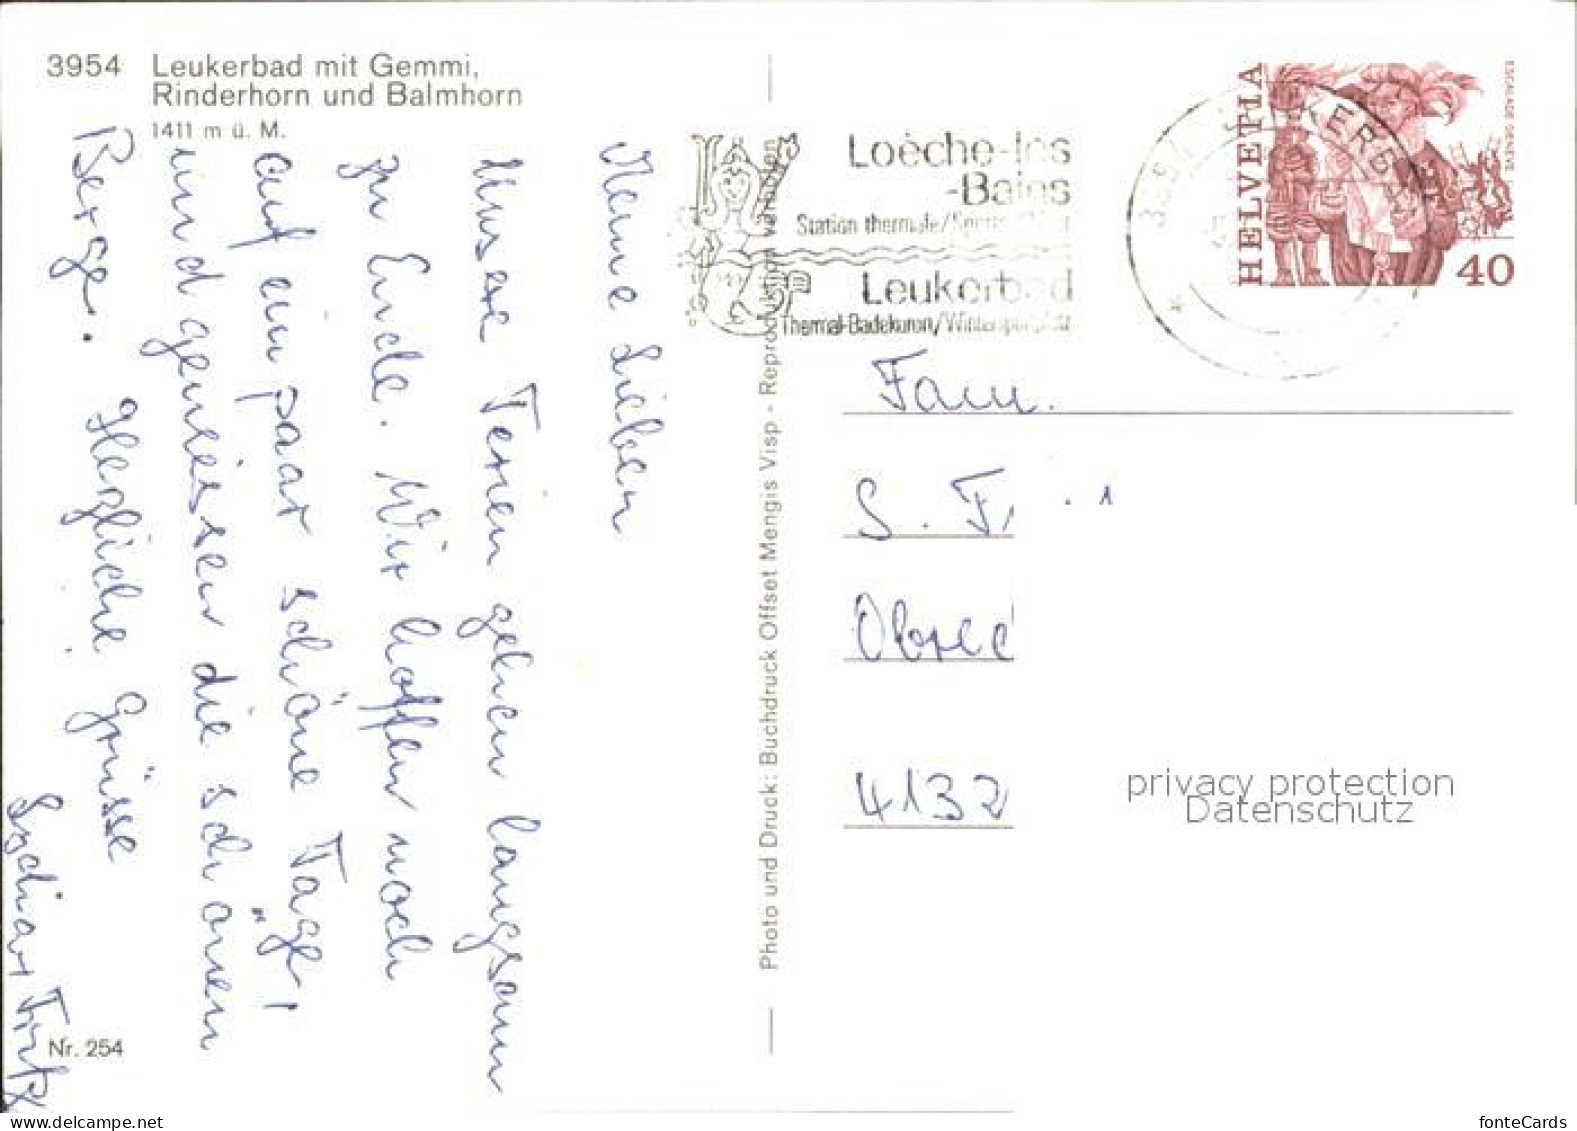 3954 Leukerbad mit Gemmi,
Rinderhorn und Balmhorn
1411 m ü. M.
Meine Lieben
Unsere Ferien gehen langsam
zu Ende. Wir hoffen noch
auf ein paar schöne Tage,
und geniessen die schönen
Berge.
Herzliche Grüsse
Lydia + Fritz
Nr. 254
Photo und Druck: Buchdruck Offset Mengis Visp - Reproduktion verboten
Loèche-les
-Bains
Station thermale/Sports
Leukerbad
Thermal-Badekuren/Wintersportplatz
3954 LEUKERBAD
HELVETIA
ESCALADE GENÈVE
40
Fam.
S. F.
4132
privacy protection
Datenschutz
https://www.delcampe.net
fonteCards